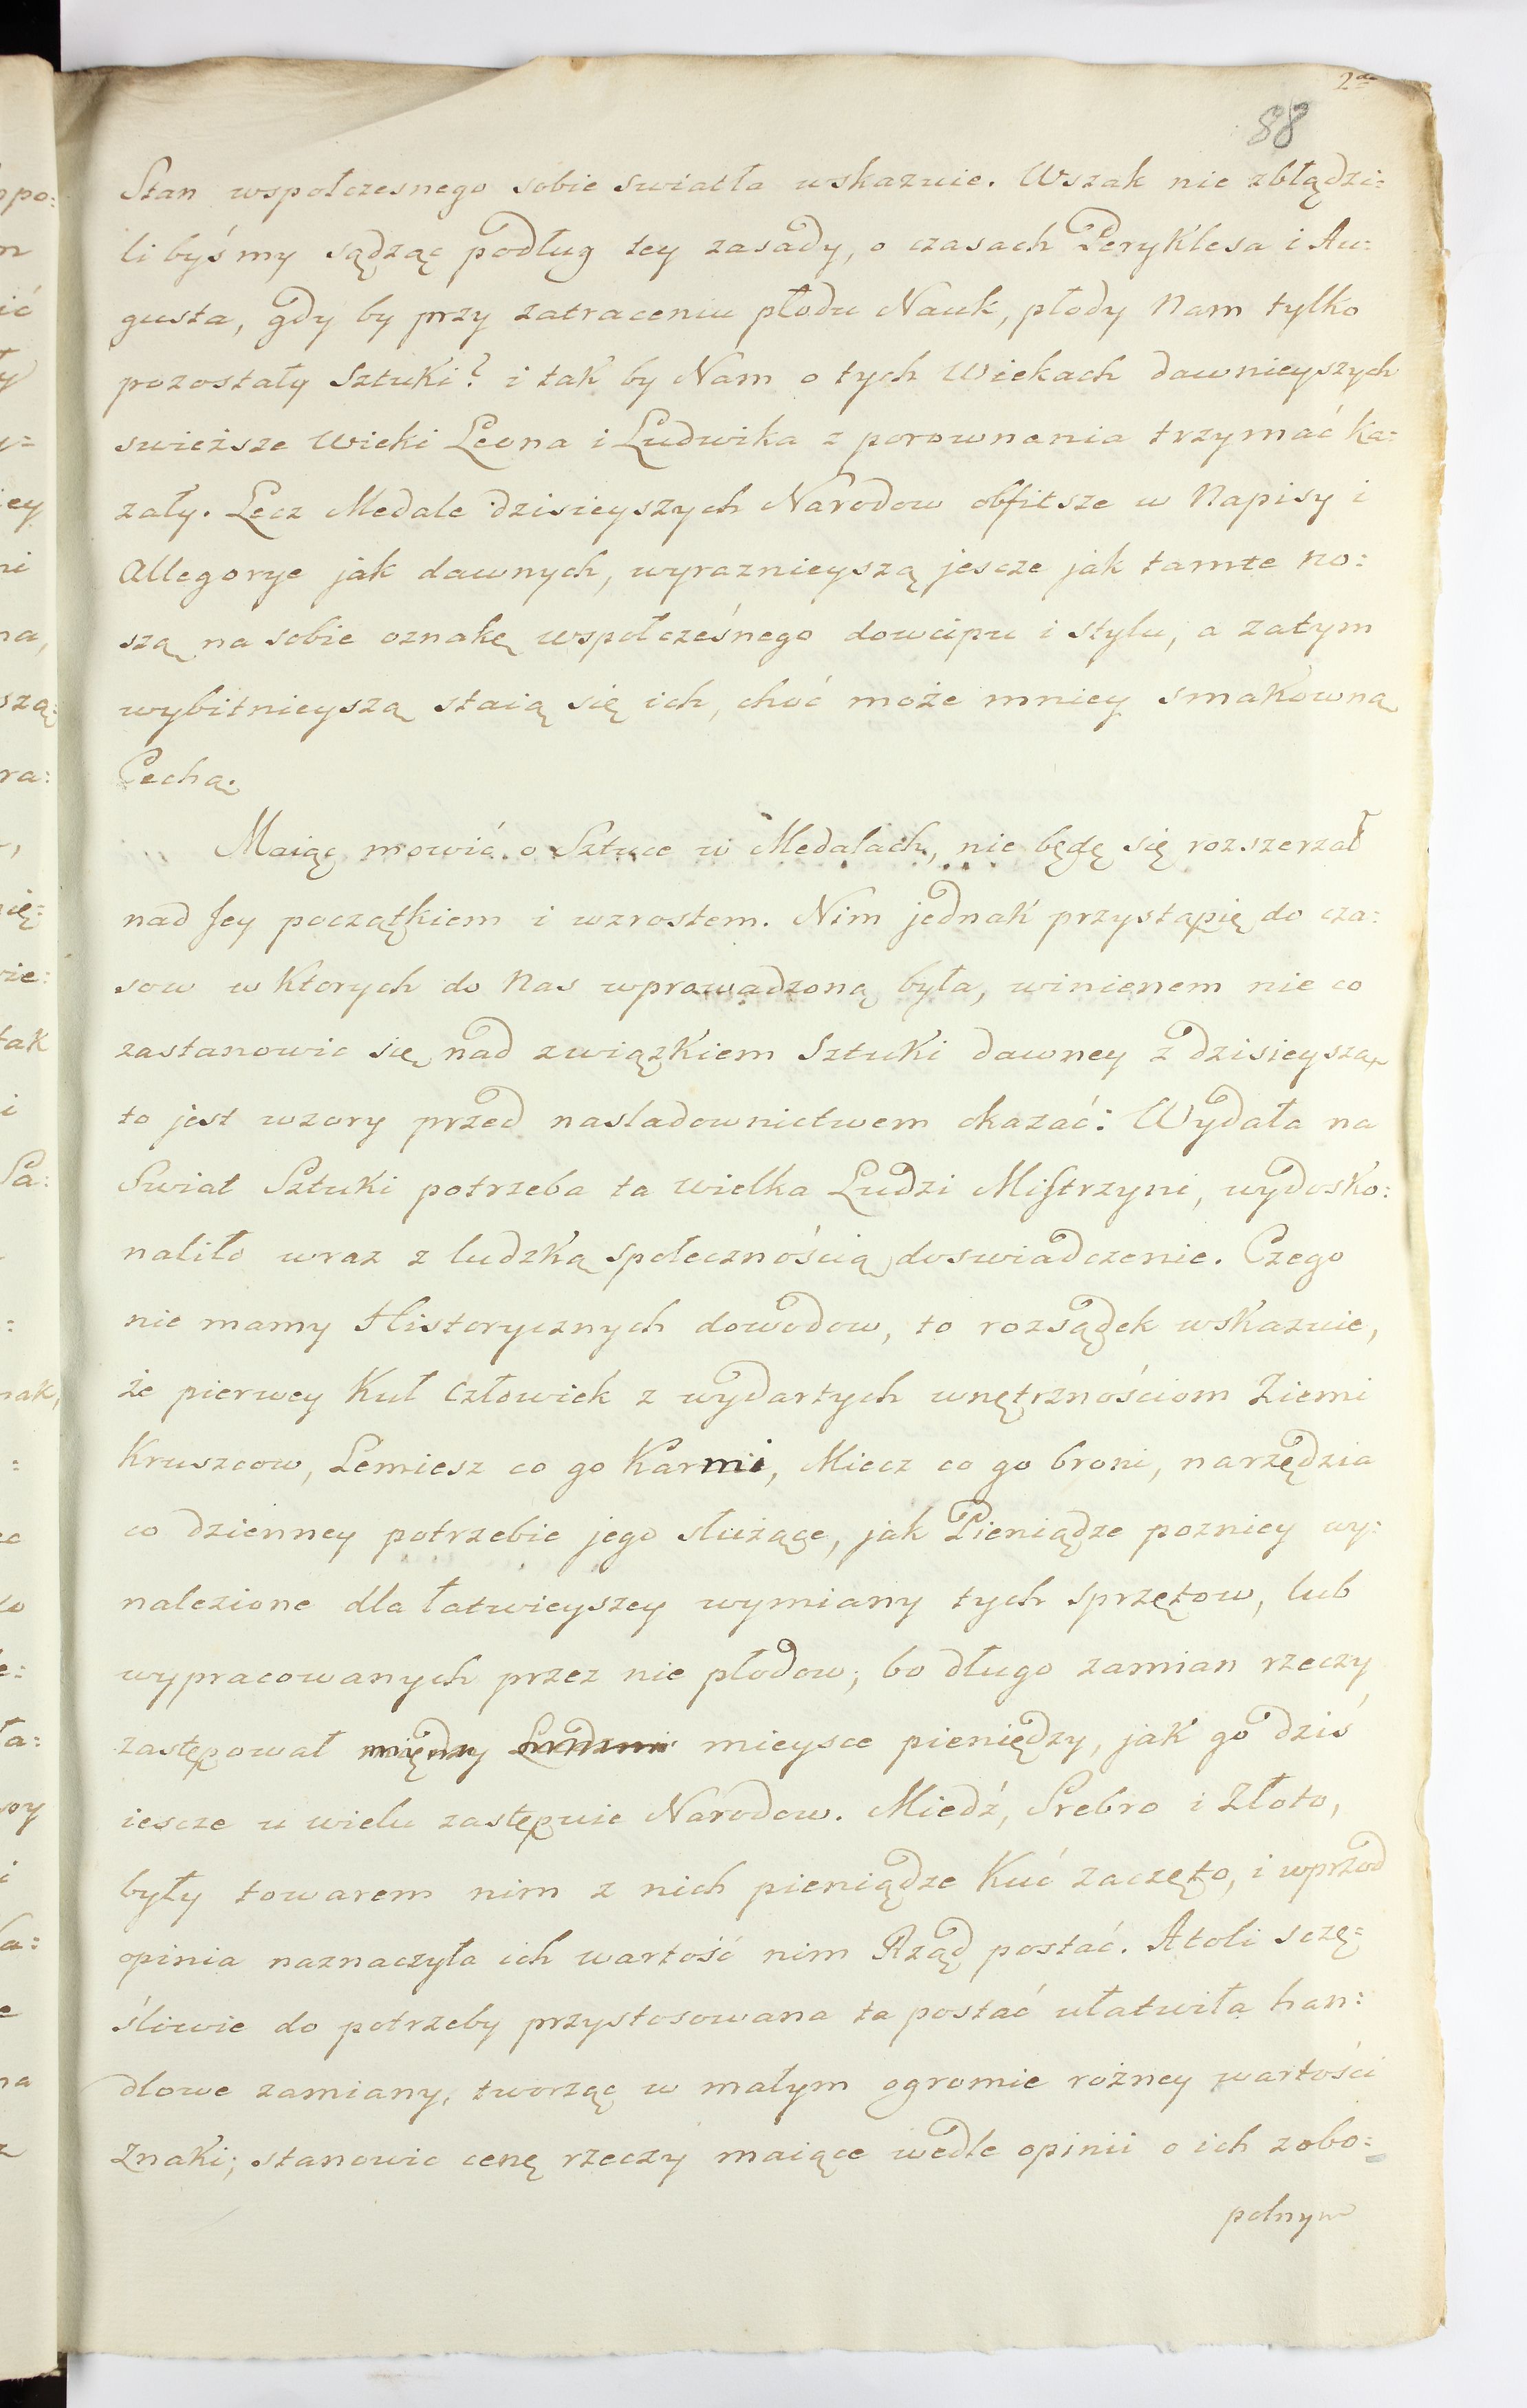 2do
88
Stan wspołczesnego sobie swiatła wskazuie. Wszak nie zbłądzi:
li byśmy sądząc podług tey zasady, o czasach Peryklesa i Au:
gusta, gdy by przy zatraceniu płodu Nauk, płody Nam tylko
pozostały Sztuki? i tak by Nam o tych Wiekach dawnieyszych
swieższe Wieki Leona i Ludwika z porownania trzymać ka:
zały. Lecz Medale dzisieyszych Narodow obfitsze w Napisy i
Allegorye jak dawnych, wyraznieyszą jescze jak tamte no:
szą na sobie oznakę wspołcześnego dowcipu i stylu, a zatym
wybitnieyszą staią się ich, choć może mniey smakowną
Cechą.
Maiąc mowić o Sztuce w Medalach, nie będę się rozszerzał
nad Jey początkiem i wzrostem. Nim jednak przystąpię do cza:
sow w Ktorych do Nas wprowadzoną była, winienem nie co
zastanowic się nad związkiem Sztuki dawney z dzisieyszą,
to jest wzory przed nasladownictwem okazać: Wydała na
Swiat Sztuki potrzeba ta wielka Ludzi Mistrzyni, wydosko:
naliło wraz z ludzką społecznością doswiadczenie. Czego
nie mamy Historycznych dowodow, to rozsądek wskazuie,
że pierwey Kuł Człowiek z wydartych wnętrznościom Ziemi
Kruszcow, Lemiesz co go Karmi, Miecz co go broni, narzędzia
co dzienney potrzebie jego służące, jak Pieniądze pozniey wy:
nalezione dla łatwieyszey wymiany tych sprzętow, lub
wypracowanych przez nie płodow; bo długo zamian rzeczy
zastępował między Ludzmi mieysce pieniędzy, jak go dziś
iescze u wielu zastępuie Narodow. Miedź, Srebro i Złoto,
były towarem nim z nich pieniądze Kuć zaczęto, i wprzod
opinia naznaczyła ich wartość nim Rząd postać. Atoli sczę:
śliwie do potrzeby przystosowana ta postać ułatwiła han:
dlowe zamiany, tworząc w małym ogromie rożney wartości
Znaki; stanowic cenę rzeczy maiące wedle opinii o ich zobo:
polnym